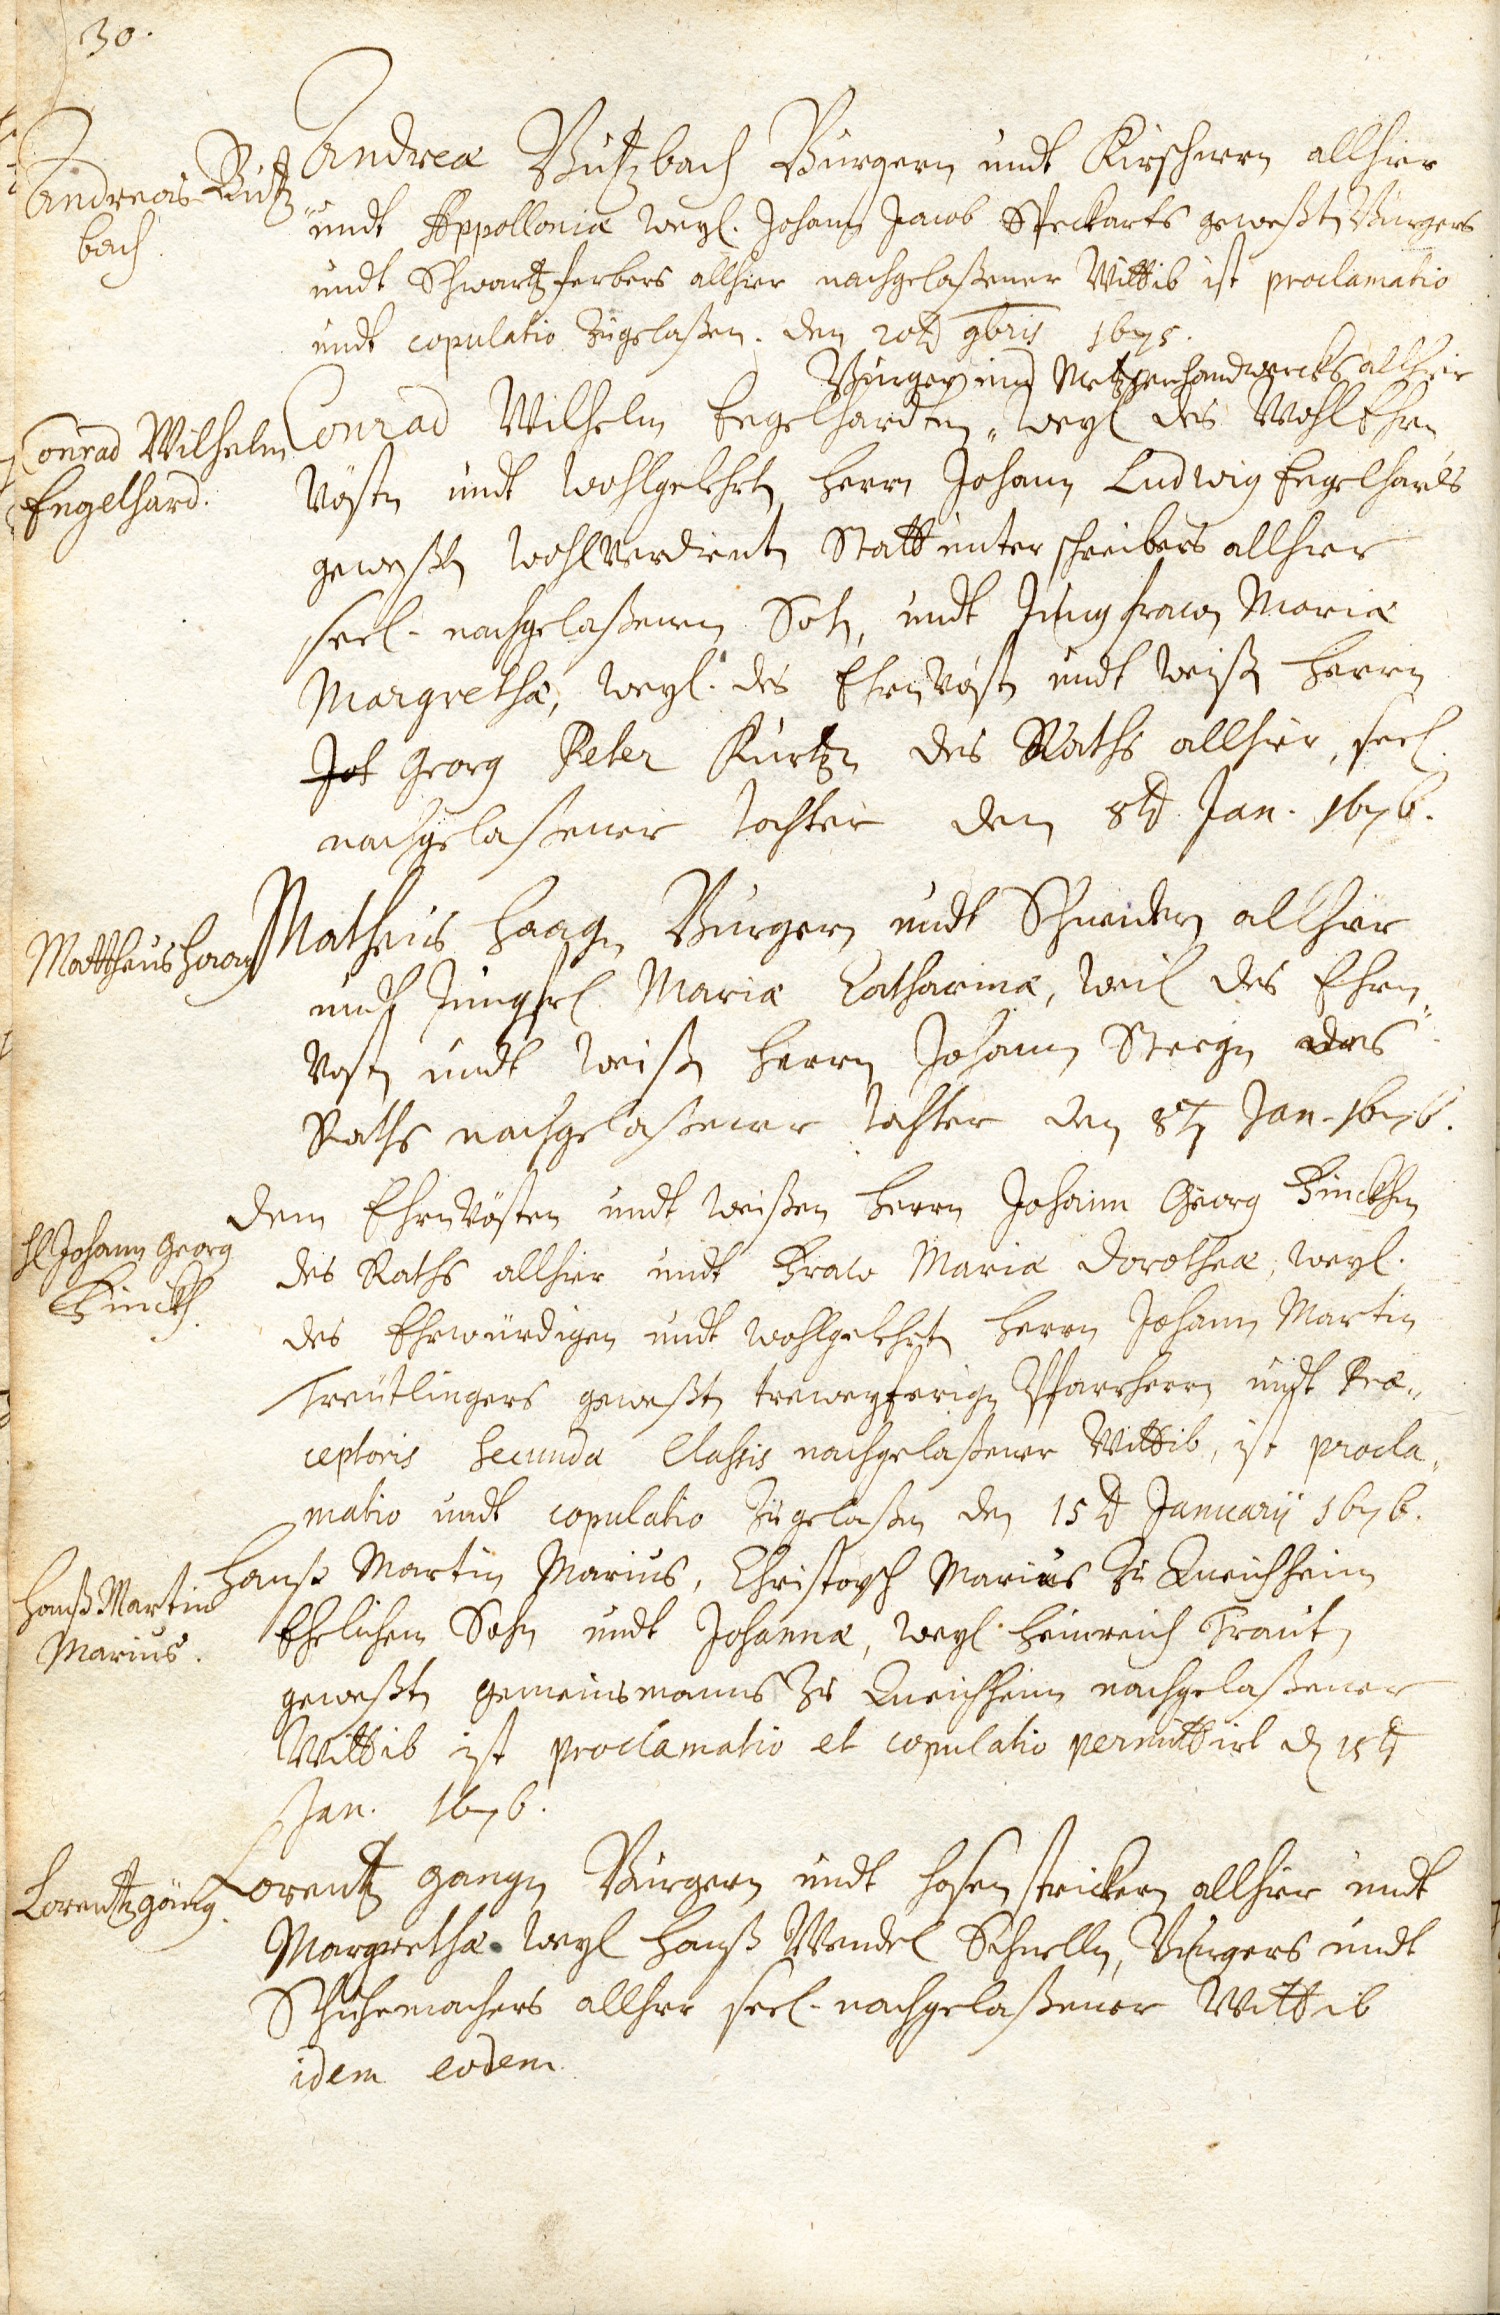 30.
Andreas Butz
bach
Andreæ Butzbach Burgern undt Kirschnern allhier
undt Appolloniæ weyl. Johann Jacob Speckarts geweßt Burgers
undt Schwartzferbers allhier nachgelaßener Wittib ist proclamatio
undt copulatio zugelaßen. den 20t 9bris 1675.
Burger und Metzgerhandwercks allhier
Conrad Wilhelm
Engelhard.
Conrad Wilhelm Engelhardten, weyl des WohlEhrn
Vöstn undt wohlgelehrtn herrn Johann Ludwig Engelhards
geweßtn wohlverdientn Stattunterschreibers allhier
seel. nachgelaßenen Sohn, undt Jungfrawn Mariæ
Margrethæ, weyl. des Ehrnvöstn undt weißn herrn
Joh Georg Peter Kurtzn des Raths allhier, seel.
nachgelaßener tochter den 8t Jan. 1676.
Mattheus haag
Matheus haagn Burgern undt Schneidern allhier
undt Jungfrl Mariæ Catharinæ, weil des Ehrn
Vöstn undt weißn herrn Johann Steegn des
Raths nachgelaßener tochter den 8t Jan. 1676.
hl Johann Georg
Finckh.
Dem Ehrnvösten undt weißen herrn Johann Georg Finckhn
des Raths allhier undt Fraw Mariæ Dorotheæ, weyl.
des Ehrwürdigen undt wohlgelehrtn herrn Johann Martin
Treütlingers geweßtn treweyferign Pfarrherrn undt Præ
ceptoris Secundæ Classis nachgelaßener Wittib, ist procla
matio undt copulatio zugelaßen den 15t Januarij 1676.
hanß Martin
Marius.
hanß Martin Marius, Christoph Marius zu Queichheim
Ehelichem Sohn undt Johannæ, weyl. heinrich Trautn
geweßtn gemeinsmanns zu Queichheim nachgelaßener
Wittib ist proclamatio et copulatio permittirt d 15t
Jan. 1676.
Lorentz gäng.
Lorentz gangn Burgern undt hosenstrickern allhier undt
Margrethæ weyl hanß Wendel Schnelln, Burgers undt
Schuhemachers allhier seel. nachgelaßener Wittib
idem eodem.